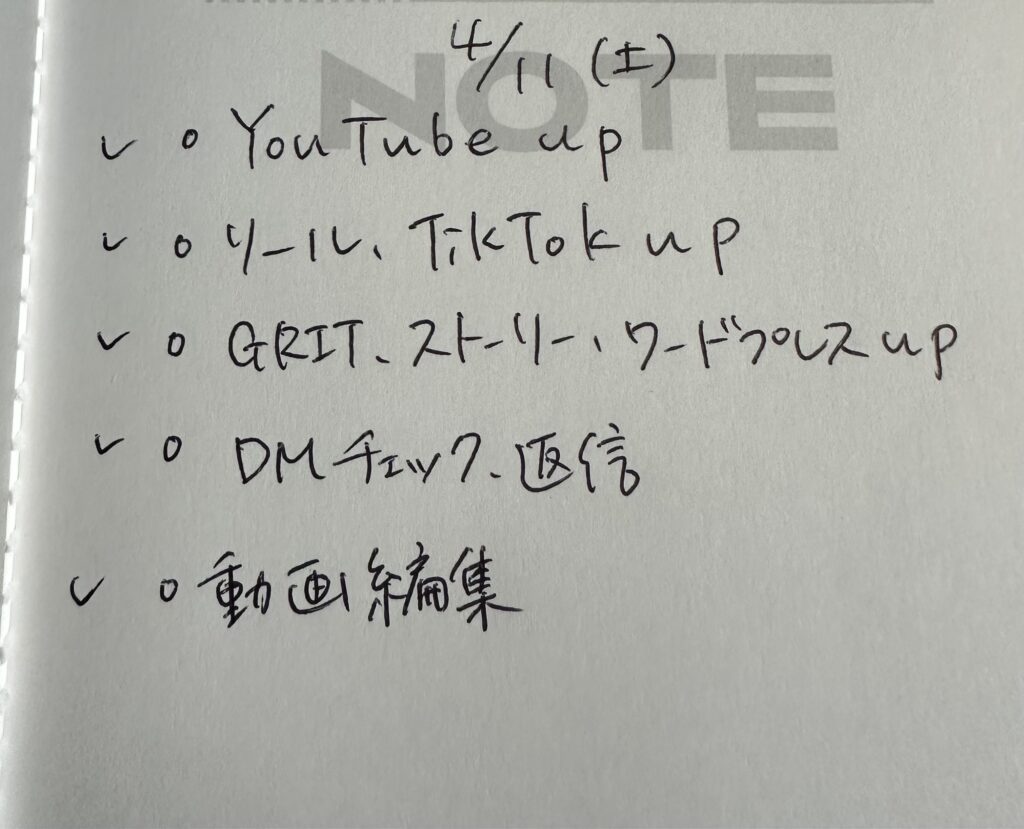 NOTE
4/11 (土)
✓ ○ YouTube up
✓ ○ リール、TikTok up
✓ ○ GRIT、ストーリー、ワードプレス up
✓ ○ DMチェック、返信
✓ ○ 動画編集